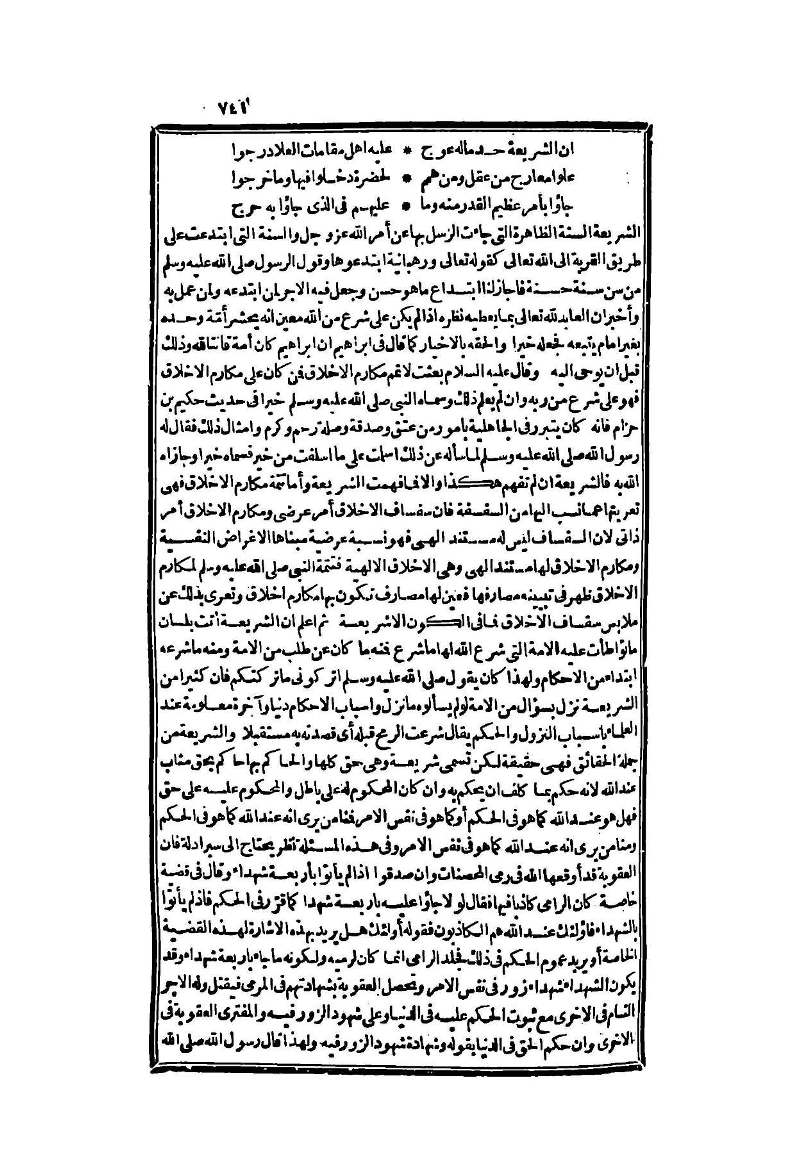 ٧٤٢
ان الشريعة حد ماله عوج * عليه اهل مقامات العلا درجوا
علوا معارج من عقل ومن همم * لحضرة دخلوا فيها وما خرجوا
جاؤا بأمر عظيم القدر منه وما * عليهم فى الذى جاؤا به حرج
الشريعة السنة الظاهرة التى جاءت الرسل بها عن أمر الله عز وجل والسنة التى ابتدعت على
طريق القربة الى الله تعالى كقوله تعالى ورهبانية ابتدعوها وقول الرسول صلى الله عليه وسلم
من سن سنة حسنة فاجاز لنا ابتداع ما هو حسن وجعل فيه الاجر لمن ابتدعه ولمن عمل به
وأخبر ان العابد لله تعالى بما يعطيه نظره اذا لم يكن على شرع من الله معين انه يحشر أمة وحده
بغير امام يتبعه فجعله خيرا والحقه بالاخيار كما قال فى ابراهيم ان ابراهيم كان أمة قانتا لله وذلك
قبل ان يوحى اليه وقال عليه السلام بعثت لاتمم مكارم الاخلاق فمن كان على مكارم الاخلاق
فهو على شرع من ربه وان لم يعلم ذلك وسماه النبى صلى الله عليه وسلم خيرا فى حديث حكيم بن
حزام فانه كان يتبرر فى الجاهلية بامور من عتق وصدقة وصلة رحم وكرم وامثال ذلك فقال له
رسول الله صلى الله عليه وسلم لما سأله عن ذلك اسلمت على ما اسلفت من خير فسماه خيرا وجازاه
الله به فالشريعة ان لم تفهم هكذا والا فما فهمت الشريعة وأما تتمة مكارم الاخلاق فهى
تعريتها مما نسب اليها من السفسفة فان سفساف الاخلاق أمر عرضى ومكارم الاخلاق أمر
ذاتى لان السفساف ليس له مستند الهى فهو نسبة عرضية مبناها الاغراض النفسية
ومكارم الاخلاق لها مستند الهى وهى الاخلاق الالهية فتتمة النبى صلى الله عليه وسلم لمكارم
الاخلاق ظهر فى تبيينه مصارفها فعين لها مصارف تكون بها مكارم اخلاق وتعرى بذلك عن
ملابس سفساف الاخلاق فما فى الكون الا شريعة ثم اعلم ان الشريعة أتت بلسان
ما تواطأت عليه الامة التى شرع الله لها ما شرع فمنه ما كان عن طلب من الامة ومنه ما شرعه
ابتداء من الاحكام ولهذا كان يقول صلى الله عليه وسلم اتركونى ما تركتكم فان كثيرا من
الشريعة نزل بسؤال من الامة لو لم يسألوه ما نزل واسباب الاحكام دنيا وآخرة معلومة عند
العلماء باسباب النزول والحكم يقال شرعت الرمح قبله أى قصدته به مستقبلا والشريعة من
جملة الحقائق فهى حقيقة لكن تسمى شريعة وهى حق كلها والحاكم بها حاكم بحق مثاب
عند الله لانه حكم بما كلف ان يحكم به وان كان المحكوم له على باطل والمحكوم عليه على حق
فهل هو عند الله كما هو فى الحكم أو كما هو فى نفس الامر فمنا من يرى انه عند الله كما هو فى الحكم
ومنا من يرى انه عند الله كما هو فى نفس الامر وفى هذه المسئلة نظر يحتاج الى سبر ادلة فان
العقوبة قد أوقعها الله فى رمى المحصنات وان صدقوا اذا لم يأتوا بأربعة شهداء وقال فى قضة
خاصة كان الرامى كاذبا فيها فقال لولا جاؤا عليه باربعة شهدا كما قرر فى الحكم فاذ لم يأتوا
بالشهداء فاؤلئك عند الله هم الكاذبون فقوله أولئك هل يريد بهذه الاشارة لهذه القضية
الخاصة أو يريد عموم الحكم فى ذلك فجلد الرامى انما كان لرميه ولكونه ما جاء باربعة شهداء وقد
يكون الشهداء شهداء زور فى نفس الامر وتحصل العقوبة بشهادتهم فى المرمى فيقتل وله الاجر
التام فى الاخرى مع ثبوت الحكم عليه فى الدنيا وعلى شهود الزور فيه والمفترى العقوبة فى
الاخرى وان حكم الحق فى الدنيا بقوله وشهادة شهود الزور فيه ولهذا قال رسول الله صلى الله